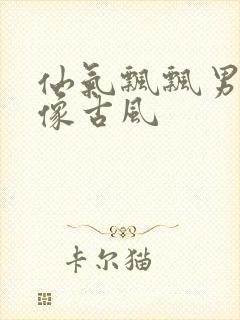 仙氣飄飄男
像古風
卡尔猫